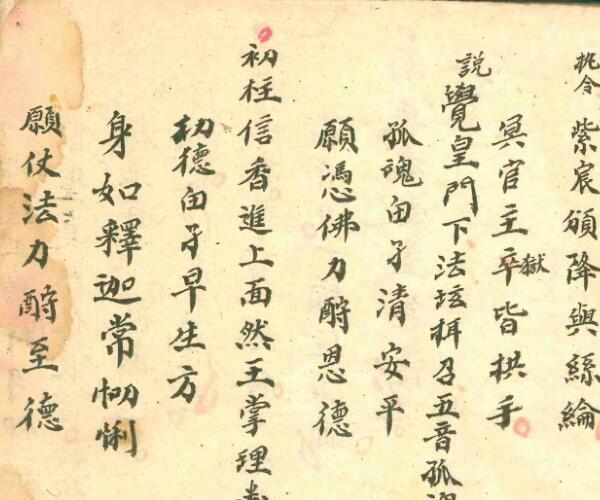 紫宸頒降與絲綸
冥官主卒獄皆拱手
説覺皇門下法珓拜召五音孤
孤魂由子清安平
願憑佛力酧恩德
初柱信香進上面然王掌理
初德由子早生方
身如釋迦常忉悧
願仗法力酧至德